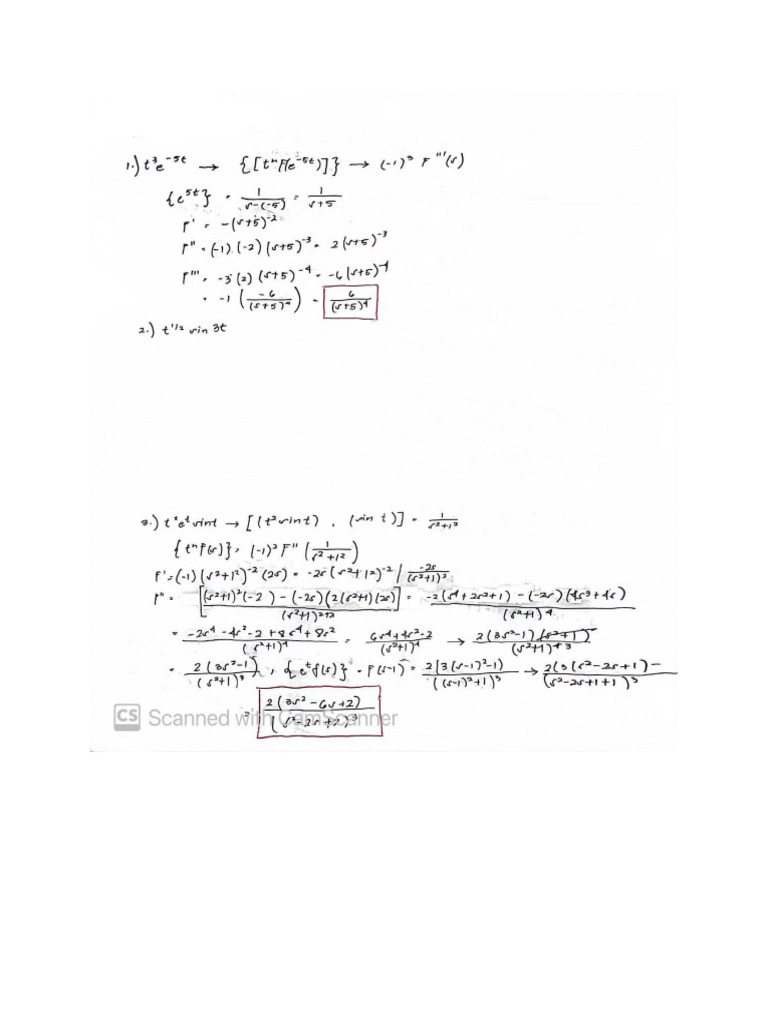 1.) t³e⁻⁵ᵗ → {[tⁿf(e⁻⁵ᵗ)]} → (-1)³ F'''(s)
{e⁵ᵗ} = 1/(s-(-5)) = 1/(s+5)
F' = -(s+5)⁻²
F'' = (-1)(-2)(s+5)⁻³ = 2(s+5)⁻³
F''' = -3(2)(s+5)⁻⁴ = -6(s+5)⁻⁴
= -1(-6/(s+5)⁴) = 6/(s+5)⁴
2.) t¹/² sin 3t
3.) t²eᵗsint → [(t²sint), (sin t)] = 1/(s²+1²)
{tⁿf(s)} = (-1)²F''(1/(s²+1²))
F' = (-1)(s²+1²)⁻²(2s) = -2s(s²+1²)⁻² / -2s/(s²+1)²
F'' = [(s²+1)²(-2) - (-2s)(2(s²+1)(2s)]/(s²+1)²⁺² = -2(s⁴+2s²+1) - (-2s)(4s³+4s)/(s²+1)⁴
= -2s⁴-4s²-2+8s⁴+8s²/(s²+1)⁴ = 6s⁴+4s²-2/(s²+1)⁴ → 2(3s²-1)(s²+1)/(s²+1)⁴ ³
= 2(3s²-1)/(s²+1)³, {eᵗf(s)} = F(s-1) = 2(3(s-1)²-1)/((s-1)²+1)³ → 2(3(s²-2s+1)-/(s²-2s+1+1)³
= 2(3s²-6s+2)/(s²-2s+2)³
CS Scanned with CamScanner